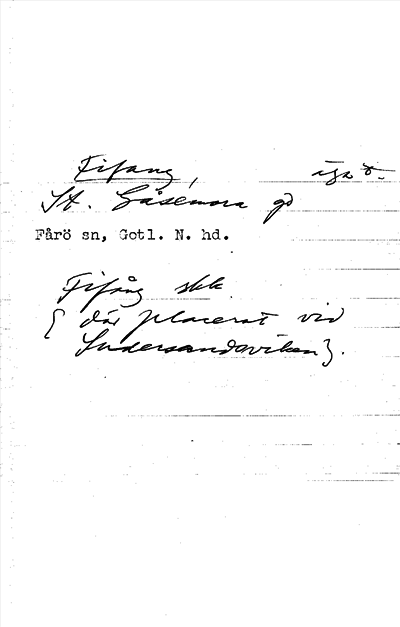 Fifang,
St. Gåsemora gd
Fårö sn, Gotl. N. hd.
Fifång skk
{ där placerat vid
Sudersandsviken}.